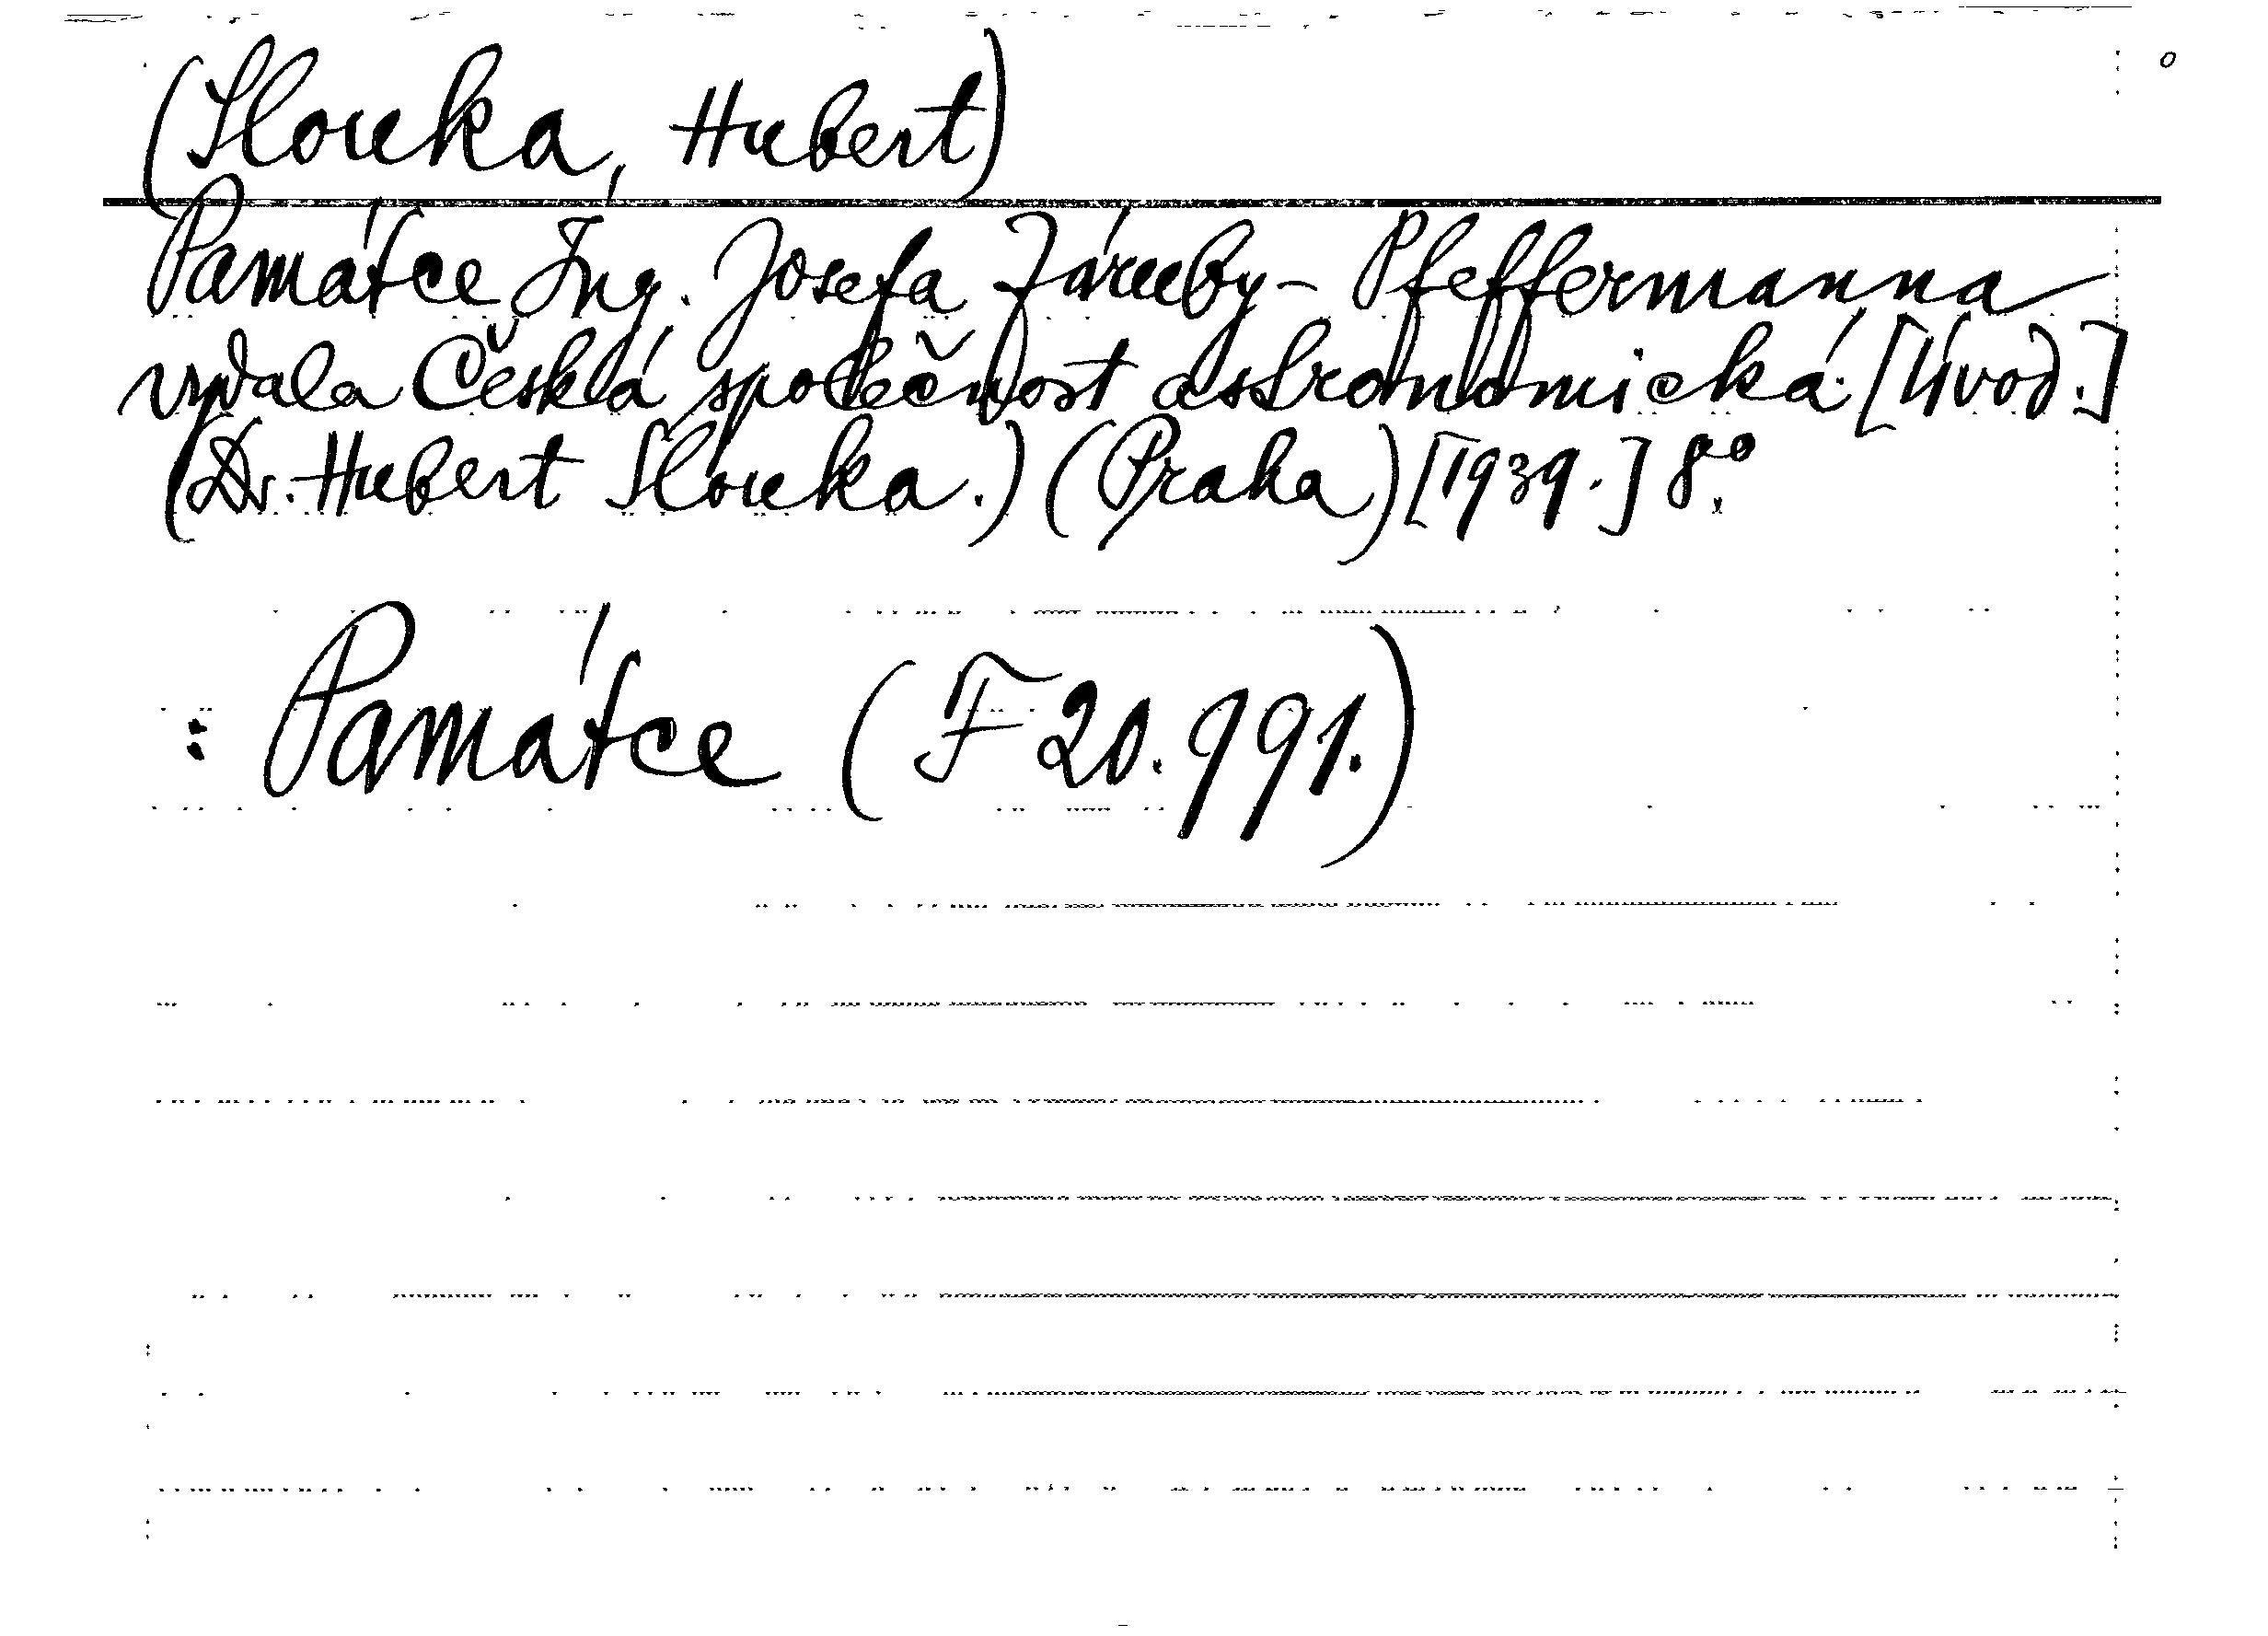 (Slouka, Hubert)
Památce Ing. Josefa Záruby-Pfeffermanna
vydala Česká společnost astronomická. [Úvod.]
(Dr. Hubert Slouka.) (Praha) [1939.] 8°.
: Památce (F 20.991.)